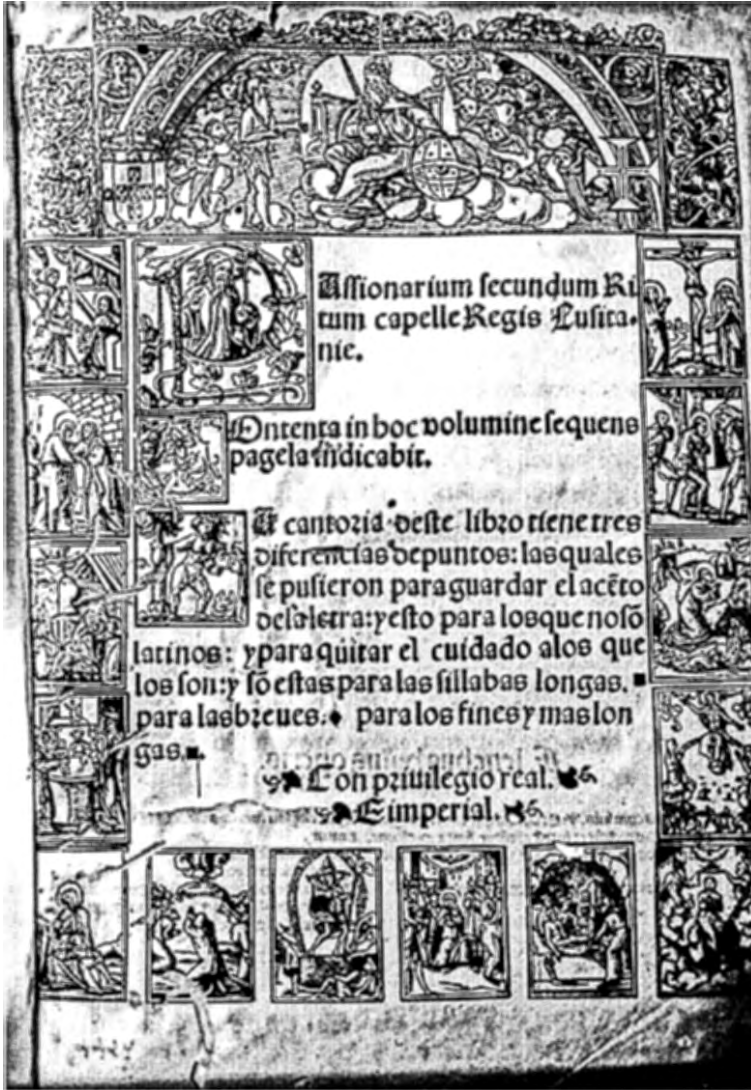 PAssionarium secundum Ri
tum capelle Regis Lusita-
nie.
COntenta in hoc volumine sequens
pagela indicabit.
LA cantoria deste libro tiene tres
diferencias de puntos: las quales
se pusieron para guardar el acēto
dela letra: y esto para los que no sō
latinos: y para quitar el cuidado alos que
los son: y sō estas para las sillabas longas. ■
para las breues. ♦ para los fines y mas lon
gas. ■
Con priuilegio real.
E imperial.